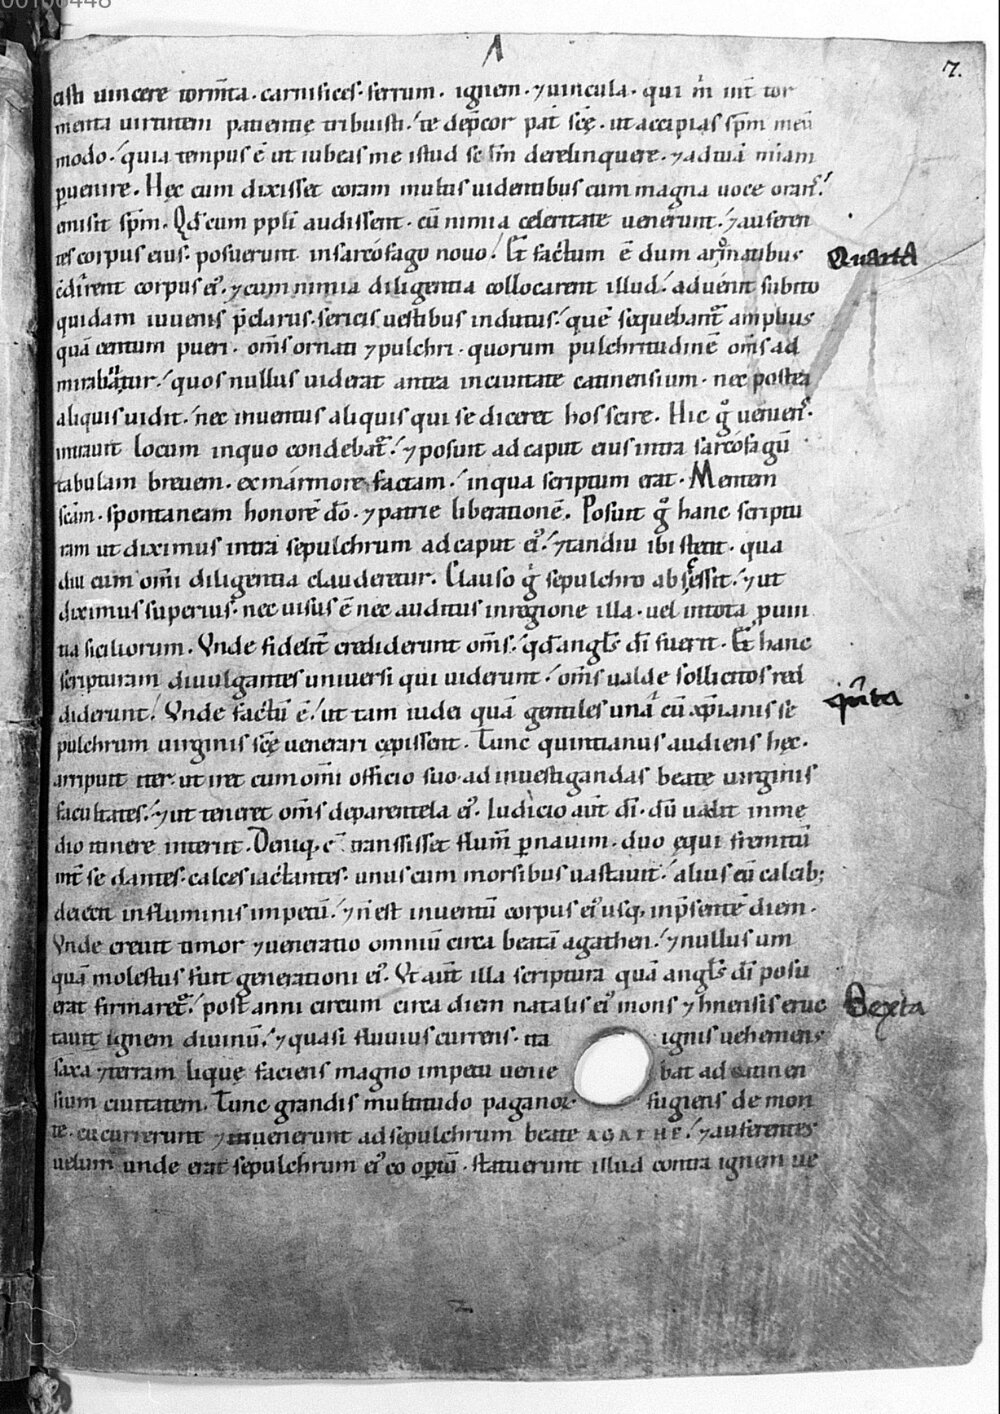 7.
cisti uincere torm̅ta · carnifices · ferrum · ignem · ⁊ uincula · qui m̅ int̅ tor
menta uirtutem patientię tribuisti · te dep̅cor pat̅ sc̅ę · ut accipias sp̅m meū
modo · quia tempus ē ut iubeas me istud sc̅lm̅ derelinquere · ⁊ ad tuā mi̅am
ꝑuenire. Hęc cum dixisset coram multis uidentibus cum magna uoce orans
emisit sp̅m. Qd̅ cum ppl̅i audissent · cū nimia celeritate uenerunt · ⁊ auferen
tes corpus eius · posuerunt in sarcofago nouo. Et factum ē dum aromatibus
Quarta
c̅dirent corpus ei᷒ · ⁊ cum nimia diligentia collocarent illud · aduenit subito
quidam iuuenis p̅clarus · sericis uestibus indutus · quē sequebant᷑ amplius
quā centum pueri · om̅s ornati ⁊ pulchri · quorum pulchritudinē om̅s ad
mirabantur · quos nullus uiderat antea in ciuitate catinensium · nec postea
aliquis uidit · nec inuentus aliquis qui se diceret hos scire. Hic gͦ ueniens ·
intrauit locum in quo condebat᷑ · ⁊ posuit ad caput eius intra sarcofagū
tabulam breuem · ex marmore factam · in qua scriptum erat · Mentem
sc̅am · spontaneam honorē dō · ⁊ patrie liberationē. Posuit gͦ hanc scriptu
ram ut diximus intra sepulchrum ad caput ei᷒ · ⁊ tandiu ibi stetit · qua
diu cum om̅i diligentia clauderetur. Clauso gͦ sepulchro abscessit · ⁊ ut
diximus superius · nec uisus ē nec auditus in regione illa · uel in tota ꝓuin
tia siciliorum. Vnde fidelit̅ crediderunt om̅s · qd̅ angl̅s di̅ fuerit. Et hanc
scripturam diuulgantes uniuersi qui uiderunt · om̅s ualde sollicitos red
diderunt. Vnde factū ē · ut tam iudei quā gentiles unā cū xp̅ianis se
q̅nta
pulchrum uirginis sc̅ę uenerari cępissent. Tunc quintianus audiens hęc ·
arripuit iter · ut iret cum om̅i officio suo · ad inuestigandas beate uirginis
facultates · ⁊ ut teneret om̅s de parentela ei᷒. Iudicio aut̅ di̅ · dū uadit in me
dio itinere interiit. Deniq; c̅ transisset flum̅ ꝑ nauim · duo equi fremitū
int̅ se dantes · calces iactantes · unus eum morsibus uastauit · alius eū calcib;
deiecit in fluminis impetū · ⁊ n̅ est inuentū corpus ei᷒ usq; in p̅sentē diem ·
Vnde creuit timor ⁊ ueneratio omniū circa beatā agathen · ⁊ nullus um
quā molestus fuit generationi ei᷒. Vt aut̅ illa scriptura quā angl̅s di̅ posu
erat firmaret᷑ · post anni circum circa diem natalis ei᷒ mons ⁊hnensis eruc
Sexta
tauit ignem diuinū · ⁊ quasi fluuius currens · ita ignis uehemens
saxa ⁊ terram liquę faciens magno impetu uenie bat ad catinen
sium ciuitatem. Tunc grandis multitudo paganor̅ · fugiens de mon
te · cucurrerunt ⁊ inuenerunt ad sepulchrum beate AGATHE · ⁊ auferentes
uelum unde erat sepulchrum ei᷒ co opertū · statuerunt illud contra ignem ue